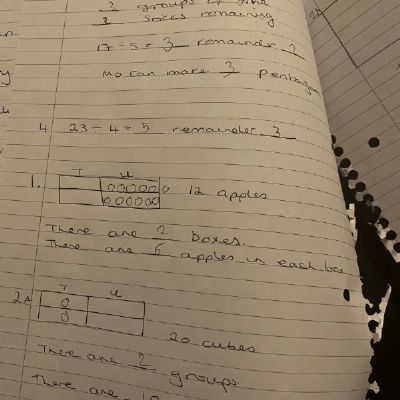 2 groups of
3 socks remaining
17 ÷ 5 = 3 remainder 2
Mo can make 3
4. 23 ÷ 4 = 5 remainder 3
T U
1. 000000 12 apples
000000
There are 2 boxes.
There are 6 apples in each box
T U
2A 0
0
20 cubes
There are 2 groups.
There are 10